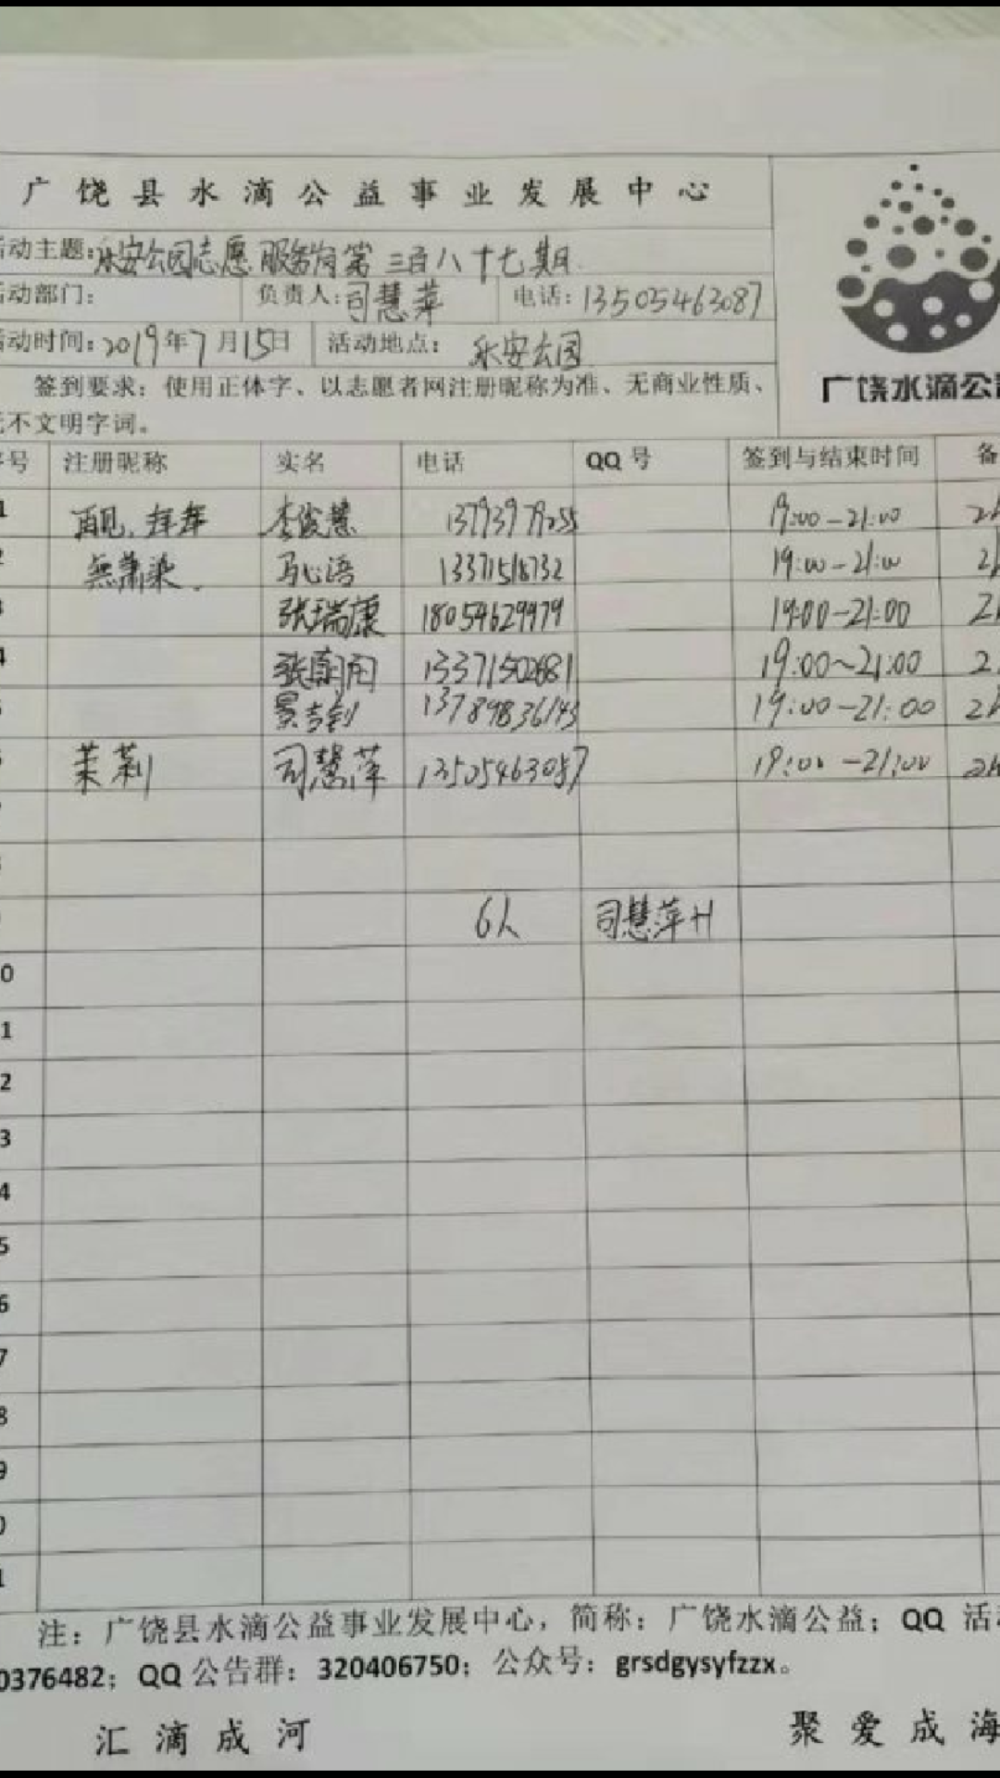 广饶县水滴公益事业发展中心
动主题:永安公园志愿服务岗第三百八十七期
动部门: 负责人:司慧萍 电话:13505463087
动时间:2019年7月15日 活动地点: 永安公园
签到要求：使用正体字、以志愿者网注册昵称为准、无商业性质、
不文明字词。
广饶水滴公
号 注册昵称 实名 电话 QQ号 签到与结束时间 备
1 再见,拜拜 李俊慧 13793979255 19:00-21:00
2 無萧染. 马心语 13371518732 19:00-21:00
张瑞康 18054629979 19:00-21:00
4 13371502681 19:00~21:00
13789836143 19:00-21:00
茉莉 司慧萍 13505463087 19:00-21:00
6人 司慧萍
0
1
2
3
4
5
6
7
8
9
注：广饶县水滴公益事业发展中心，简称：广饶水滴公益；QQ 活
0376482；QQ公告群：320406750；公众号：grsdgysyfzzx。
汇滴成河 聚爱成海